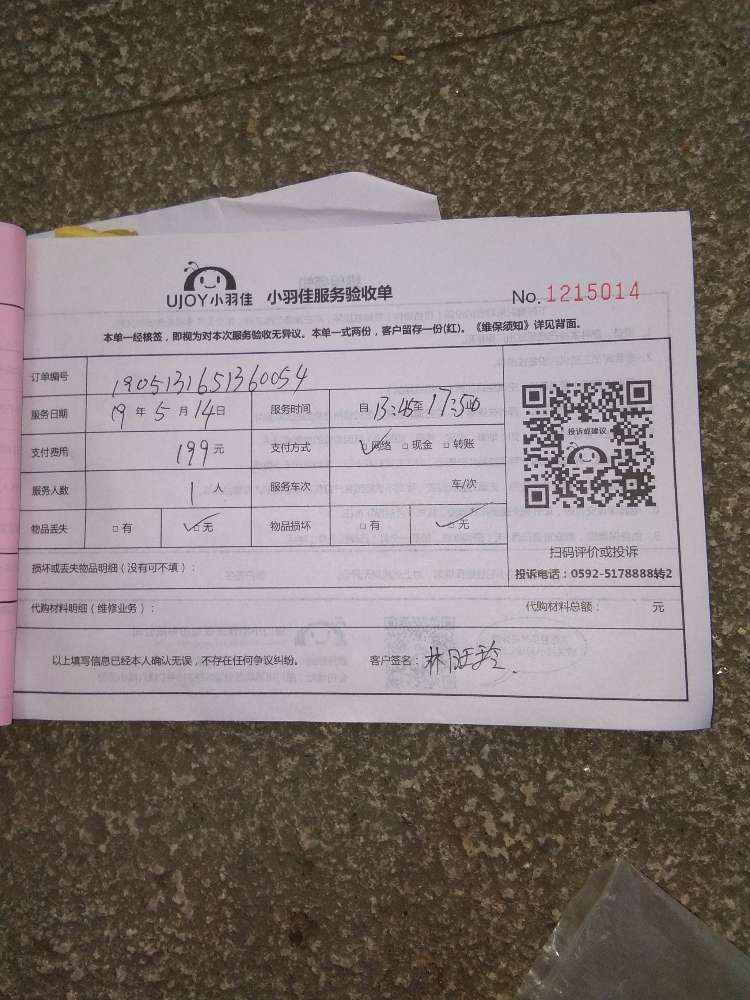 UJOY小羽佳 小羽佳服务验收单 No. 1215014
本单一经核签，即视为对本次服务验收无异议。本单一式两份，客户留存一份(红)。《维保须知》详见背面。
订单编号 1905131651360054
服务日期 19 年 5 月 14 日 服务时间 自 13:45 至 17:50 止
支付费用 199 元 支付方式 ☑ 网络 □ 现金 □ 转账
服务人数 1 人 服务车次 车/次
物品丢失 □ 有 ☑ 无 物品损坏 □ 有 ☑ 无
投诉或建议
扫码评价或投诉
投诉电话：0592-5178888转2
损坏或丢失物品明细（没有可不填）：
代购材料明细（维修业务）： 代购材料总额： 元
以上填写信息已经本人确认无误，不存在任何争议纠纷。 客户签名：林旺玲